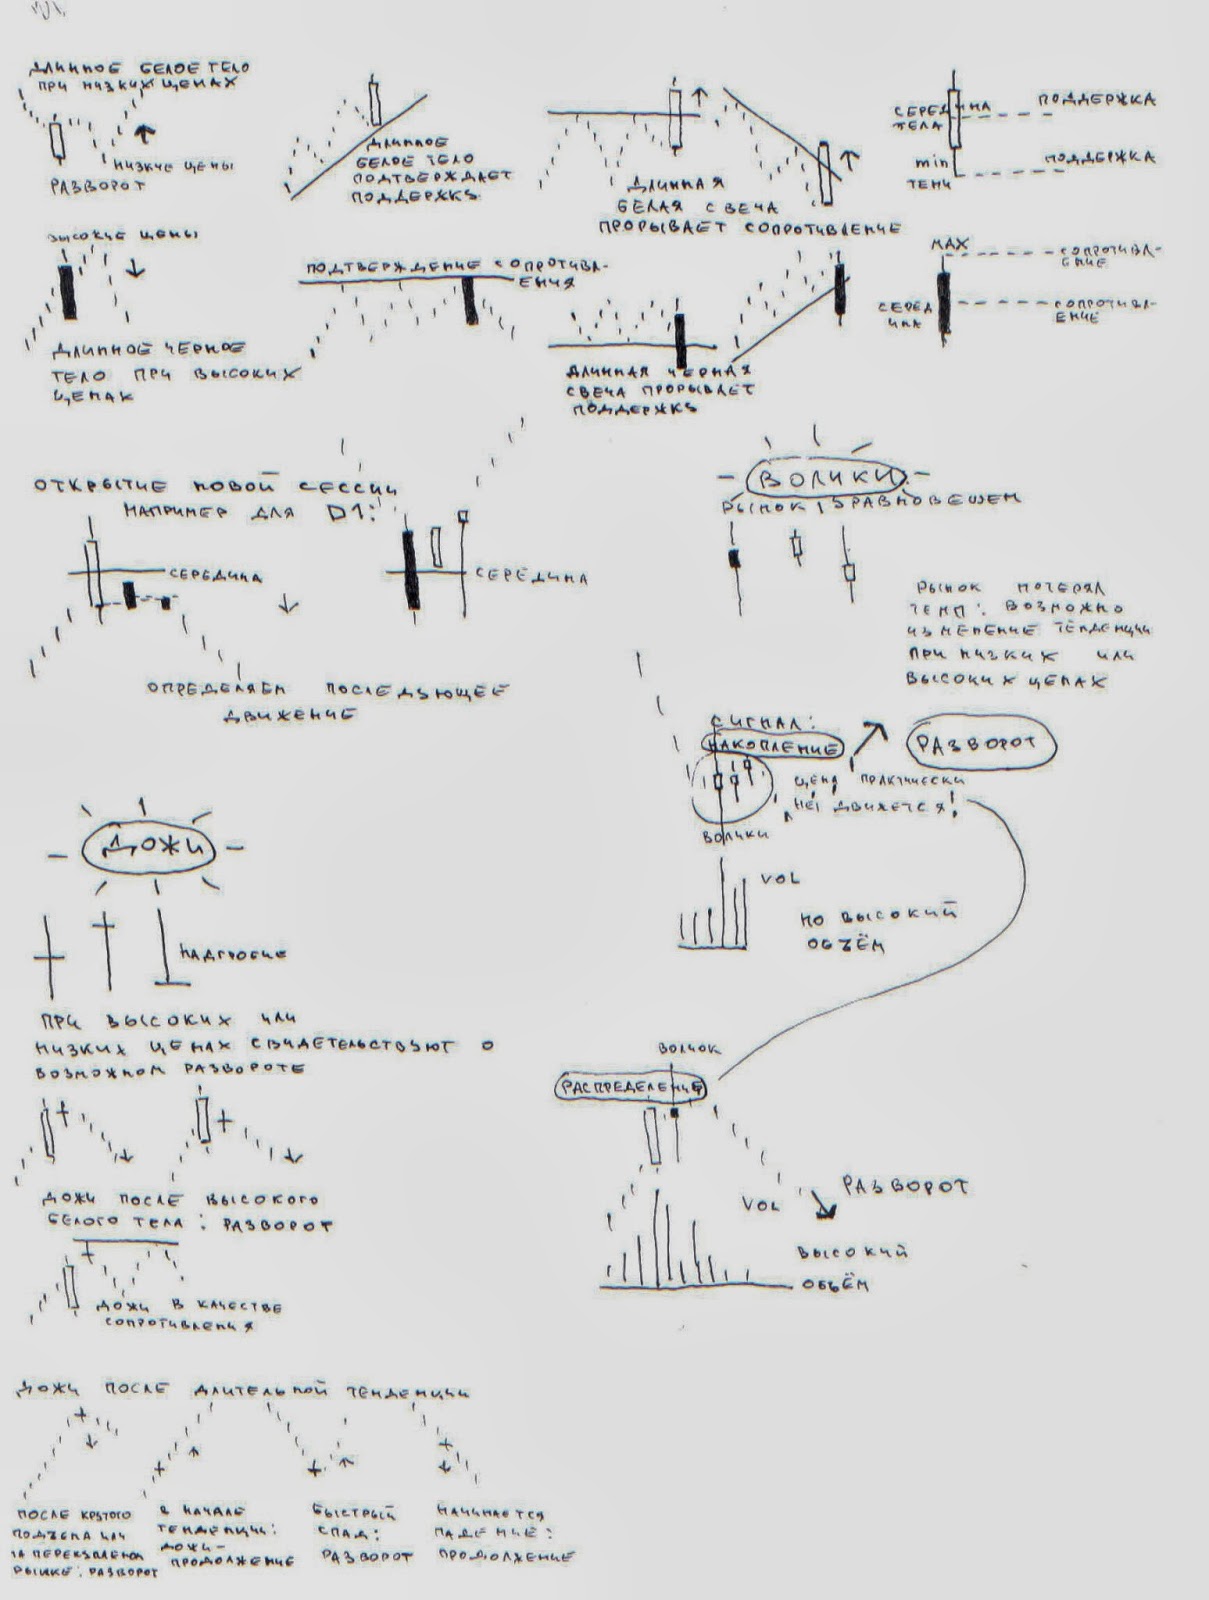 ДЛИННОЕ БЕЛОЕ ТЕЛО
ПРИ НИЗКИХ ЦЕНАХ
НИЗКИЕ ЦЕНЫ
РАЗВОРОТ
ДЛИННОЕ
БЕЛОЕ ТЕЛО
ПОДТВЕРЖДАЕТ
ПОДДЕРЖКУ
ДЛИННАЯ
БЕЛАЯ СВЕЧА
ПРОРЫВАЕТ СОПРОТИВЛЕНИЕ
СЕРЕДИНА
ТЕЛА
ПОДДЕРЖКА
min
ТЕНИ
ПОДДЕРЖКА
ВЫСОКИЕ ЦЕНЫ
ДЛИННОЕ ЧЕРНОЕ
ТЕЛО ПРИ ВЫСОКИХ
ЦЕНАХ
ПОДТВЕРЖДЕНИЕ СОПРОТИВЛ-
ЕНИЯ
ДЛИННАЯ ЧЕРНАЯ
СВЕЧА ПРОРЫВАЕТ
ПОДДЕРЖКУ
MAX
СОПРОТИВЛ-
ЕНИЕ
СЕРЕД
ИНА
СОПРОТИВЛ-
ЕНИЕ
ОТКРЫТИЕ НОВОЙ СЕССИИ
НАПРИМЕР ДЛЯ D1:
СЕРЕДИНА
СЕРЕДИНА
ОПРЕДЕЛЯЕМ ПОСЛЕДУЮЩЕЕ
ДВИЖЕНИЕ
ВОЛЧКИ
РЫНОК УРАВНОВЕШЕН
РЫНОК ПОТЕРЯЛ
ТЕМП: ВОЗМОЖНО
ИЗМЕНЕНИЕ ТЕНДЕНЦИИ
ПРИ НИЗКИХ ИЛИ
ВЫСОКИХ ЦЕНАХ
СИГНАЛ:
НАКОПЛЕНИЕ
РАЗВОРОТ
ЦЕНА ПРАКТИЧЕСКИ
НЕ ДВИЖЕТСЯ!
ВОЛЧКИ
VOL
НО ВЫСОКИЙ
ОБЪЁМ
ДОЖИ
НАДГРОБИЕ
ПРИ ВЫСОКИХ ИЛИ
НИЗКИХ ЦЕНАХ СВИДЕТЕЛЬСТВУЮТ О
ВОЗМОЖНОМ РАЗВОРОТЕ
ДОЖИ ПОСЛЕ ВЫСОКОГО
БЕЛОГО ТЕЛА: РАЗВОРОТ
ДОЖИ В КАЧЕСТВЕ
СОПРОТИВЛЕНИЯ
ВОЛЧОК
РАСПРЕДЕЛЕНИЕ
VOL
РАЗВОРОТ
ВЫСОКИЙ
ОБЪЁМ
ДОЖИ ПОСЛЕ ДЛИТЕЛЬНОЙ ТЕНДЕНЦИИ
ПОСЛЕ КРУТОГО
ПОДЪЕМА ИЛИ
НА ПЕРЕКУПЛЕНОМ
РЫНКЕ: РАЗВОРОТ
В НАЧАЛЕ
ТЕНДЕНЦИИ:
ДОЖИ-
ПРОДОЛЖЕНИЕ
БЫСТРЫЙ
СПАД:
РАЗВОРОТ
НАЧИНАЕТСЯ
ПАДЕНИЕ:
ПРОДОЛЖЕНИЕ